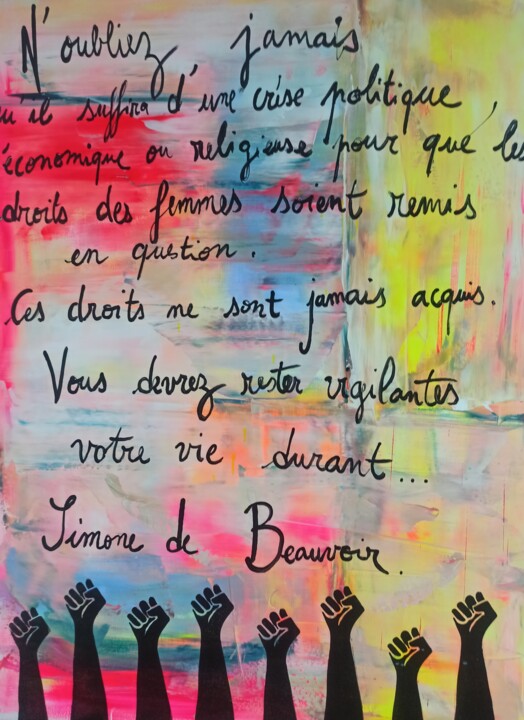 N'oubliez jamais
qu'il suffira d'une crise politique,
économique ou religieuse pour que les
droits des femmes soient remis
en question.
Ces droits ne sont jamais acquis.
Vous devrez rester vigilantes
votre vie durant...
Simone de Beauvoir.